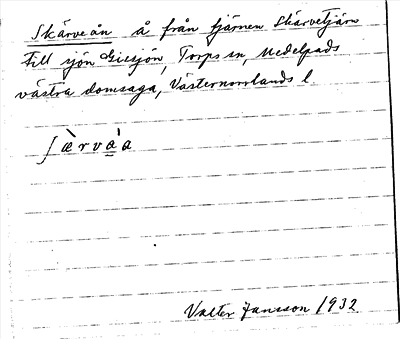 Skärveån å från tjärnen Skärvetjärn
till sjön Gissjön, Torps sn, Medelpads
västra domsaga, Västernorrlands l.
ʃæ̀rvå̀a
Valter Jansson 1932